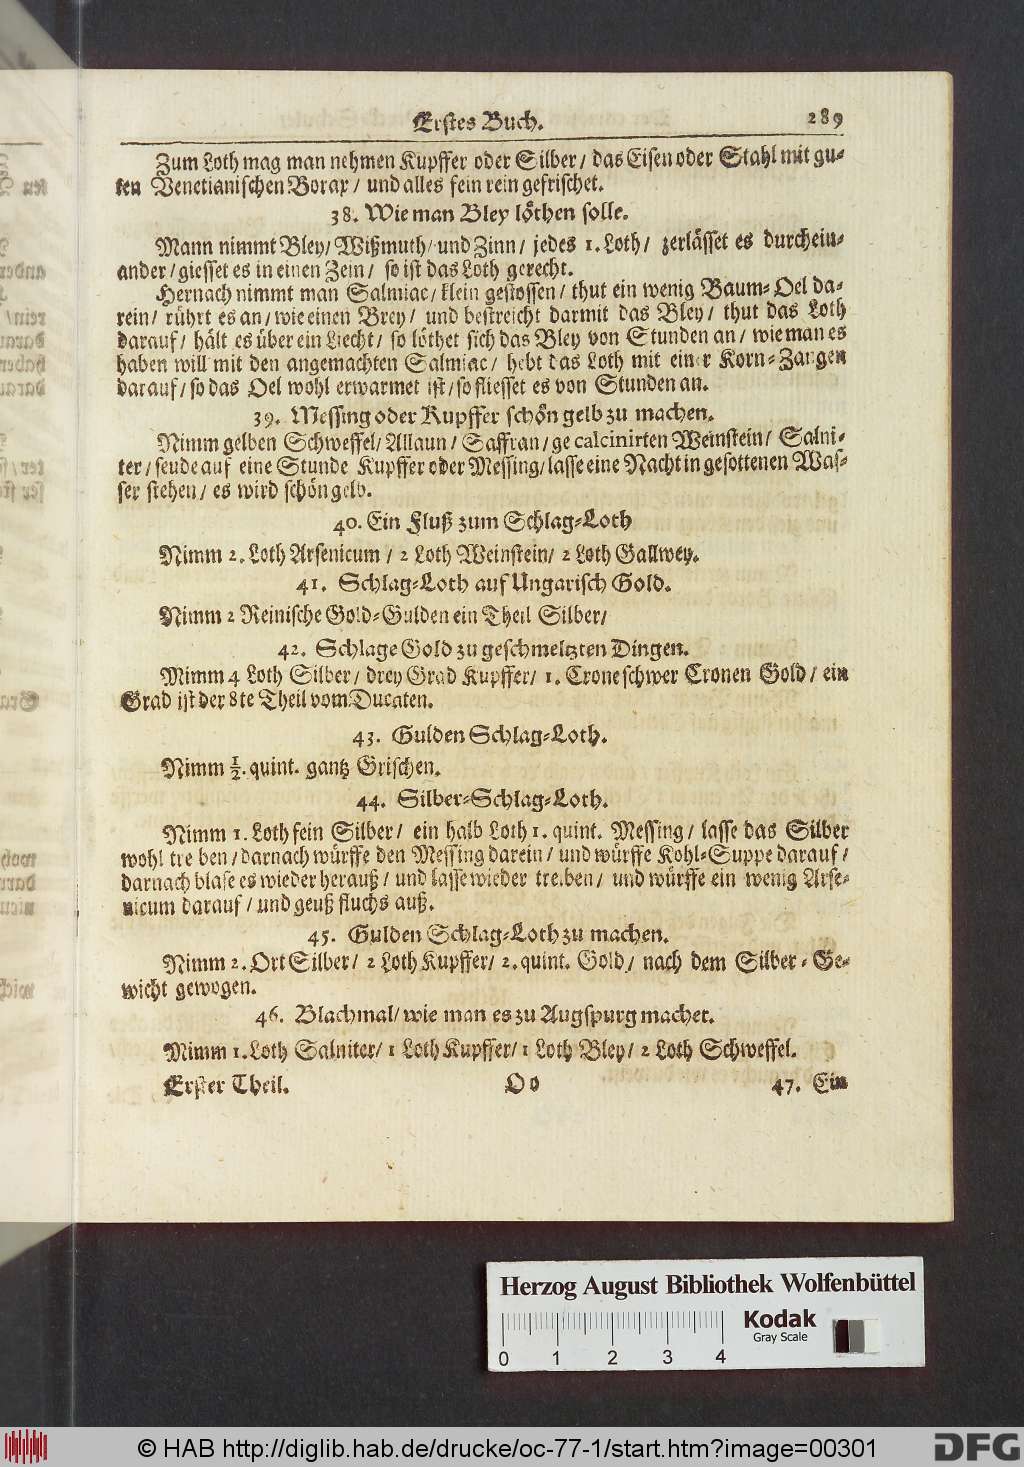 Erstes Buch. 289
Zum Loth mag man nehmen Kupffer oder Silber / das Eisen oder Stahl mit gu-
ten Venetianischen Borax / und alles fein rein gefrischet.
38. Wie man Bley löthen solle.
Mann nimmt Bley / Wißmuth / und Zinn / jedes 1. Loth / zerlässet es durchein-
ander / giesset es in einen Zein / so ist das Loth gerecht.
Hernach nimmt man Salmiac / klein gestossen / thut ein wenig Baum-Oel da-
rein / rührt es an / wie einen Brey / und bestreicht darmit das Bley / thut das Loth
darauf / hält es über ein Liecht / so löthet sich das Bley von Stunden an / wie man es
haben will mit den angemachten Salmiac / hebt das Loth mit einer Korn-Zangen
darauf / so das Oel wohl erwarmet ist / so fliesset es von Stunden an.
39. Messing oder Kupffer schön gelb zu machen.
Nimm gelben Schweffel / Allaun / Saffran / ge calcinirten Weinstein / Salni-
ter / seude auf eine Stunde Kupffer oder Messing / lasse eine Nacht in gesottenen Was-
ser stehen / es wird schön gelb.
40. Ein Fluß zum Schlag-Loth
Nimm 2. Loth Arsenicum / 2 Loth Weinstein / 2 Loth Gallwey.
41. Schlag-Loth auf Ungarisch Gold.
Nimm 2 Reinische Gold-Gulden ein Theil Silber /
42. Schlage Gold zu geschmeltzten Dingen.
Nimm 4 Loth Silber / drey Grad Kupffer / 1. Crone schwer Cronen Gold / ein
Grad ist der 8te Theil vom Ducaten.
43. Gulden Schlag-Loth.
Nimm ½. quint. gantz Grischen.
44. Silber-Schlag-Loth.
Nimm 1. Loth fein Silber / ein halb Loth 1. quint. Messing / lasse das Silber
wohl treiben / darnach würffe den Messing darein / und würffe Kohl-Suppe darauf /
darnach blase es wieder herauß / und lasse wieder treiben / und würffe ein wenig Arse-
nicum darauf / und geuß fluchs auß.
45. Gulden Schlag-Loth zu machen.
Nimm 2. Ort Silber / 2 Loth Kupffer / 2. quint. Gold / nach dem Silber-Ge-
wicht gewogen.
46. Blachmal / wie man es zu Augspurg machet.
Nimm 1. Loth Salniter / 1 Loth Kupffer / 1 Loth Bley / 2 Loth Schweffel.
Erster Theil. Oo 47. Ein
Herzog August Bibliothek Wolfenbüttel
Kodak
Gray Scale
0 1 2 3 4
© HAB http://diglib.hab.de/drucke/oc-77-1/start.htm?image=00301
DFG